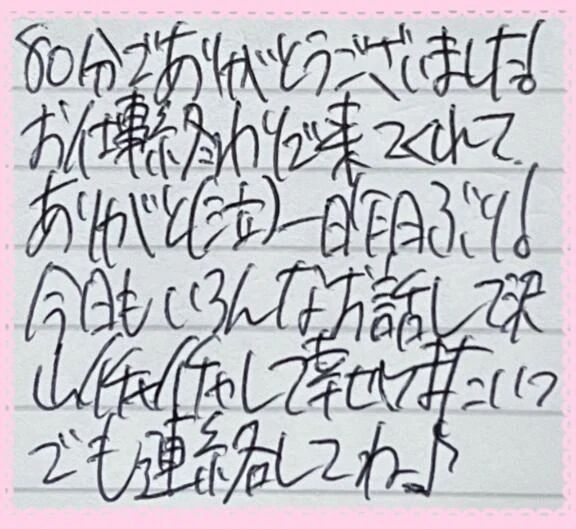 80分でありがとうございました!
お仕事終わりで来てくれて
ありがと(泣)一昨日ぶり!
今日もいろんなお話して沢
山イチャイチャして幸せです いつ
でも連絡してね♪